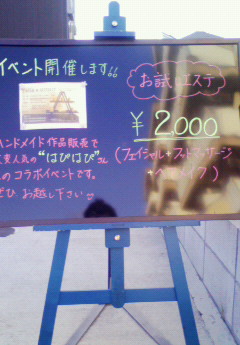 イベント開催します!!
ハンドメイド作品販売で
大人気の"はぴはぴ"さん
のコラボイベントです。
ぜひ お越し下さい
お試しエステ
¥2,000
(フェイシャル+フットマッサージ